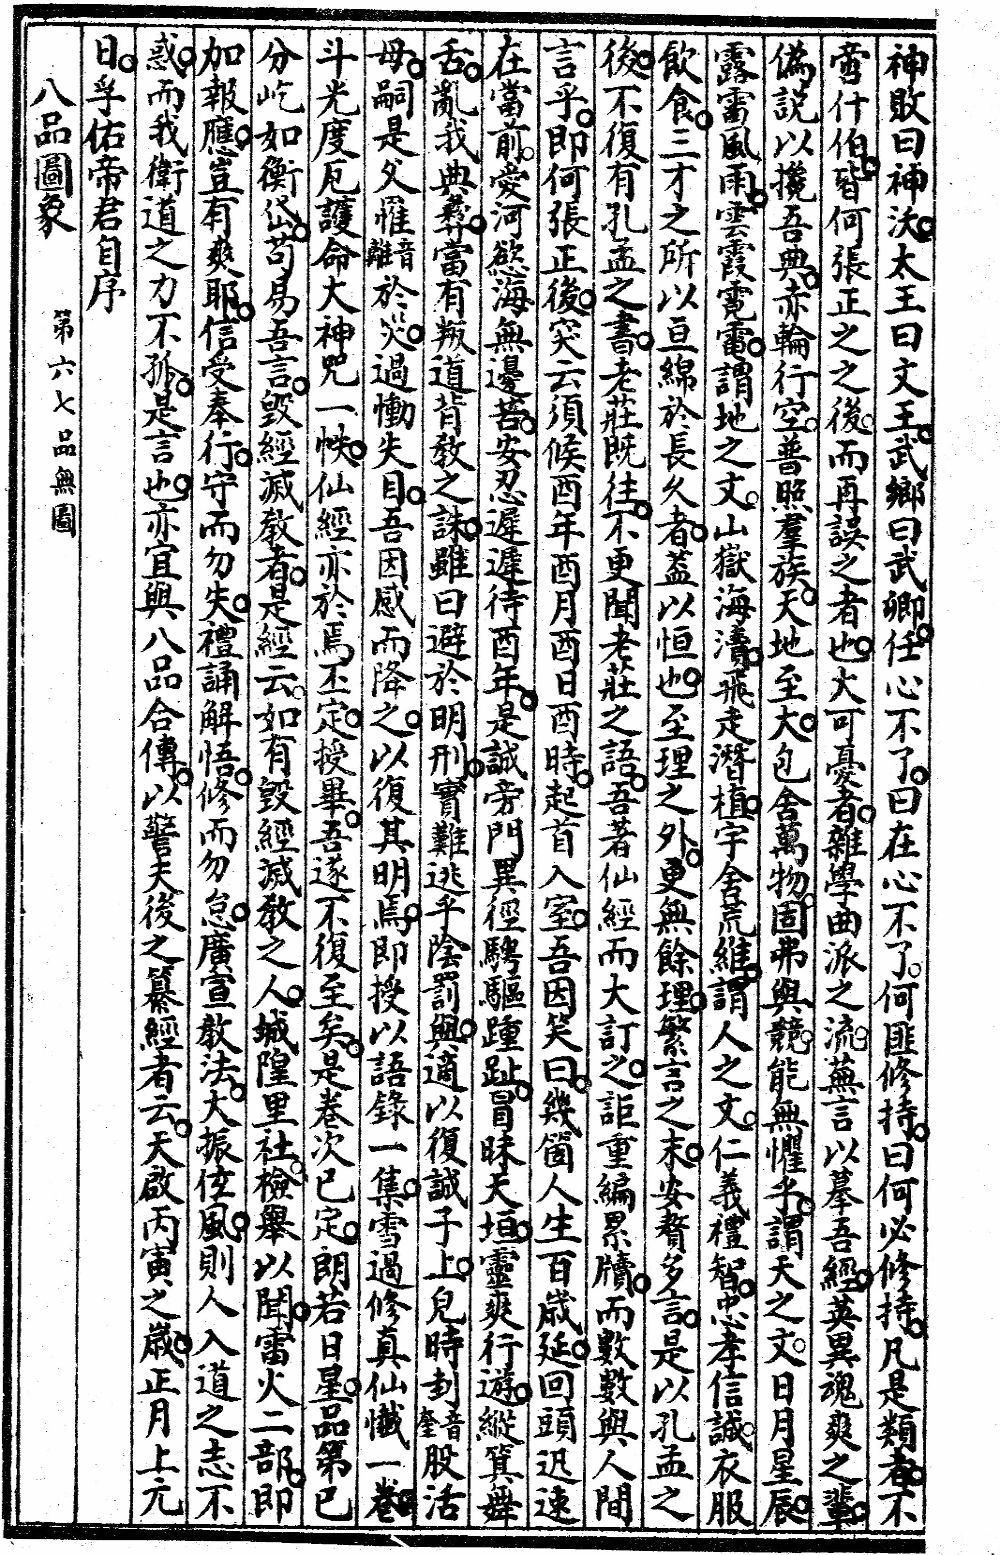 神敗曰神沃太王曰文王武鄉曰武卿任心不了曰在心不了何匪修持曰何必修持凡是類者不
啻什伯皆何張正之之後而再誤之者也大可憂者雜學曲派之流蕪言以摹吾經英異魂爽之輩
偽說以攙吾典亦輪行空普照羣族天地至大包含萬物固弗與競能無懼乎謂天之文日月星辰
露雷風雨雲霞霓電謂地之文山嶽海瀆飛走潛植宇舍荒維謂人之文仁義禮智忠孝信誠衣服
飲食三才之所以亘綿於長久者蓋以恒也至理之外更無餘理繁言之末安贅多言是以孔孟之
後不復有孔孟之書老莊既往不更聞老莊之語吾著仙經而大訂之詎重編累牘而數數與人間
言乎即何張正後突云須候酉年酉月酉日酉時起首入室吾因笑曰幾箇人生百歲延回頭迅速
在當前愛河慾海無邊苦安忍遲遲待酉年是誠旁門異徑騁驅踵趾冒昧天垣靈爽行遊縱箕舞
舌亂我典彞當有叛道背教之誅雖曰避於明刑實難逃乎陰罰與適以復誠子上兒時刲音奎股活
母嗣是父罹音離於災過慟失目吾因感而降之以復其明焉即授以語錄一集雪過修真仙懺一卷
斗光度厄護命大神咒一帙仙經亦於焉丕定授畢吾遂不復至矣是卷次已定朗若日星品第已
分屹如衡岱苟易吾言毀經滅教者是經云如有毀經滅教之人城隍里社檢舉以聞雷火二部即
加報應豈有爽耶信受奉行守而勿失禮誦解悟修而勿怠廣宣教法大振伭風則人入道之志不
惑而我衛道之力不孤是言也亦宜與八品合傳以警夫後之纂經者云天啟丙寅之歲正月上元
日孚佑帝君自序
八品圖象　第六七品無圖